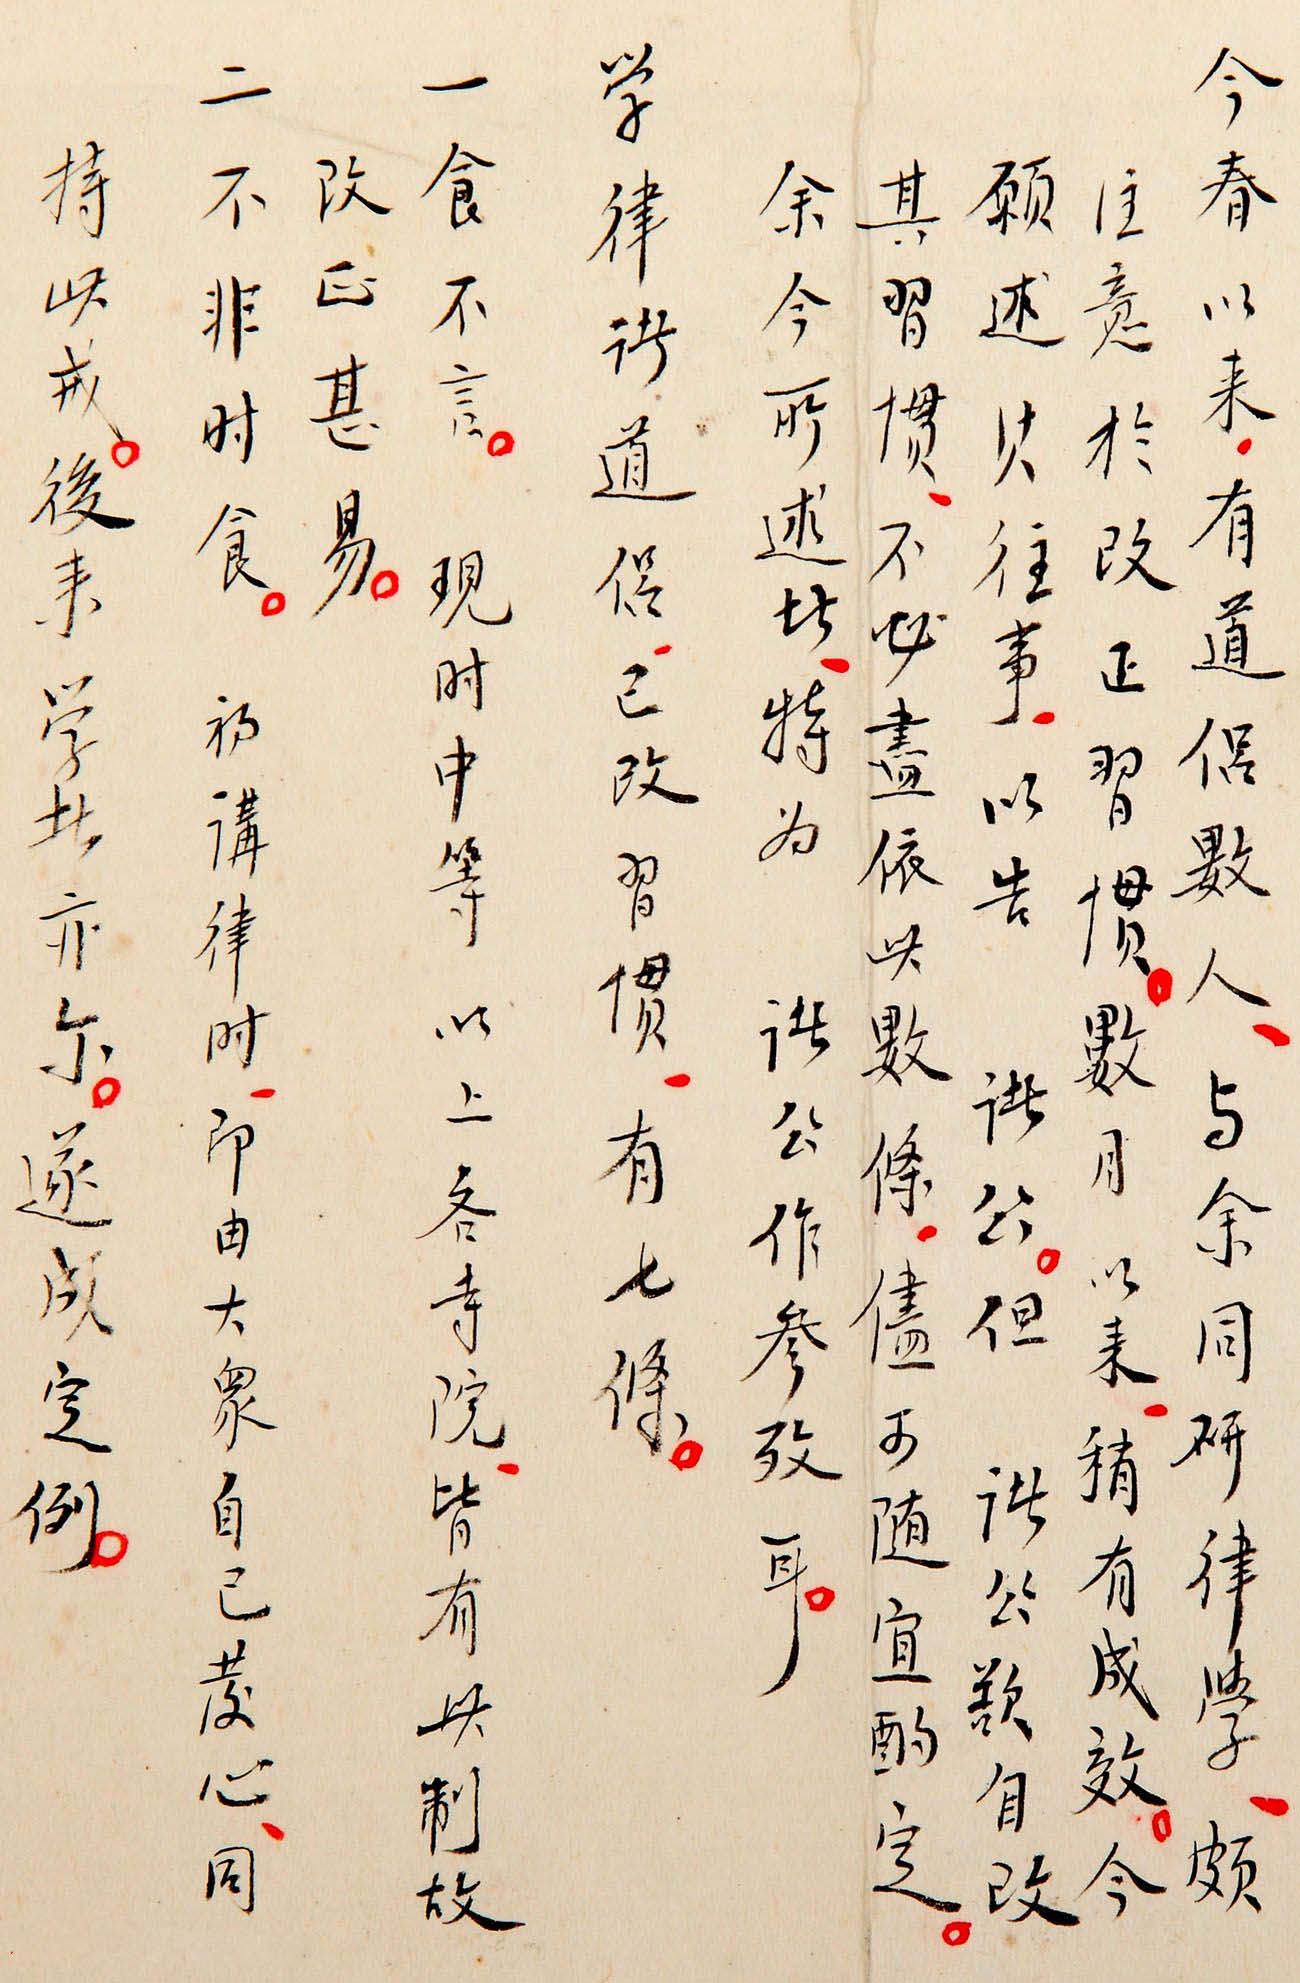 今春以来、有道侣數人、与余同研律學、頗
注意於改正習慣。數月以来、稍有成效。今
願述其往事、以告 諸公。但 諸公欲自改
其習慣、不必盡依此數條、儘可随宜酌定。
余今所述者、特为 諸公作參攷耳。
学律諸道侣、已改習慣、有七條。
一食不言。 現时中等以上各寺院、皆有此制故
改正甚易。
二不非时食。 初講律时、即由大眾自己发心、同
持此戒。後来学者亦尔。遂成定例。